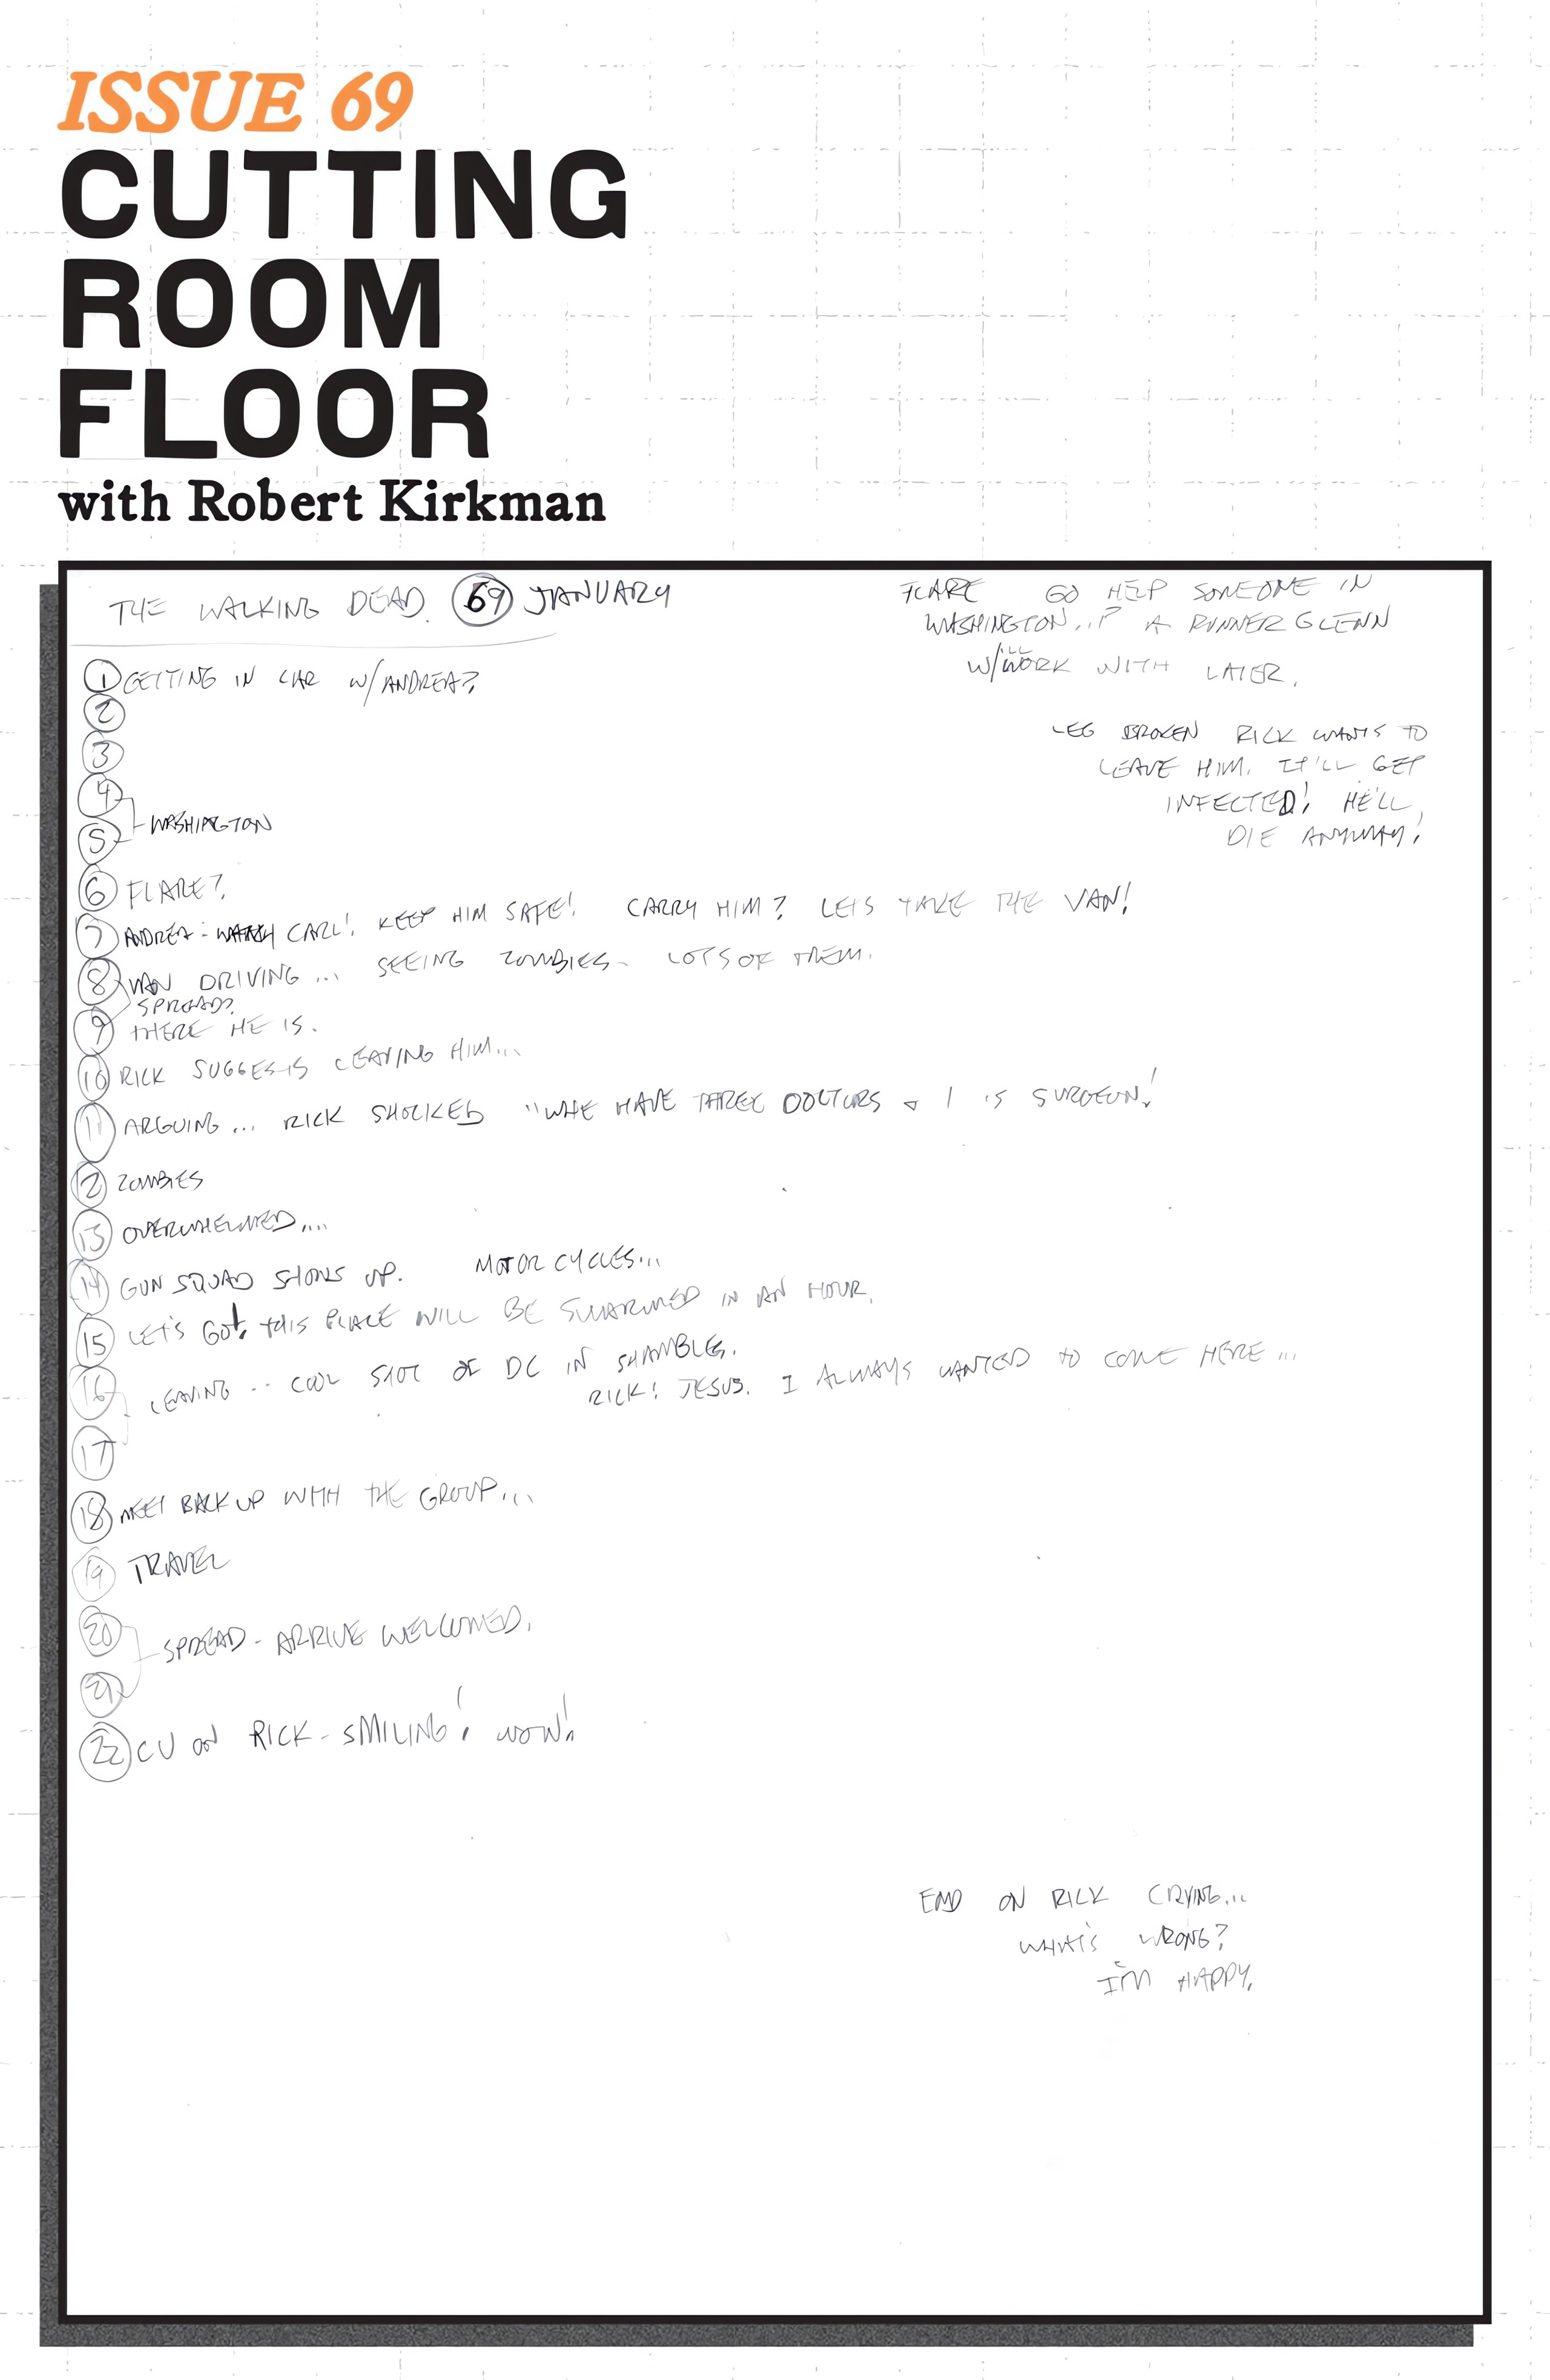 ISSUE 69
CUTTING
ROOM
FLOOR
with Robert Kirkman
THE WALKING DEAD. 69 JANUARY
FLARE GO HELP SOMEONE IN
WASHINGTON...? A RUNNER GLENN
W/ILL WORK WITH LATER.
LEG BROKEN RICK WANTS TO
LEAVE HIM. IT'LL GET
INFECTED! HE'LL
DIE ANYWAY!
1 GETTING IN CAR W/ANDREA?
2
3
4
5 WASHINGTON
6 FLARE?
7 ANDREA - WATCH CARL! KEEP HIM SAFE! CARRY HIM? LETS TAKE THE VAN!
8 VAN DRIVING... SEEING ZOMBIES - LOTS OF THEM.
SPREAD?
9 THERE HE IS.
10 RICK SUGGESTS LEAVING HIM...
11 ARGUING... RICK SHOCKED "WHE HAVE THREE DOCTORS + 1 IS SURGEON!
12 ZOMBIES
13 OVERWHELMED....
14 GUN SQUAD SHOWS UP. MOTORCYCLES...
15 LET'S GO! THIS PLACE WILL BE SWARMED IN AN HOUR.
16 LEAVING -- COOL SHOT OF DC IN SHAMBLES.
RICK! JESUS. I ALWAYS WANTED TO COME HERE...
17
18 MEET BACK UP WITH THE GROUP...
19 TRAVEL
20 SPREAD - ARRIVE WELCOMED.
21
22 CU ON RICK - SMILING! WOW!
END ON RICK CRYING...
WHAT'S WRONG?
I'M HAPPY.